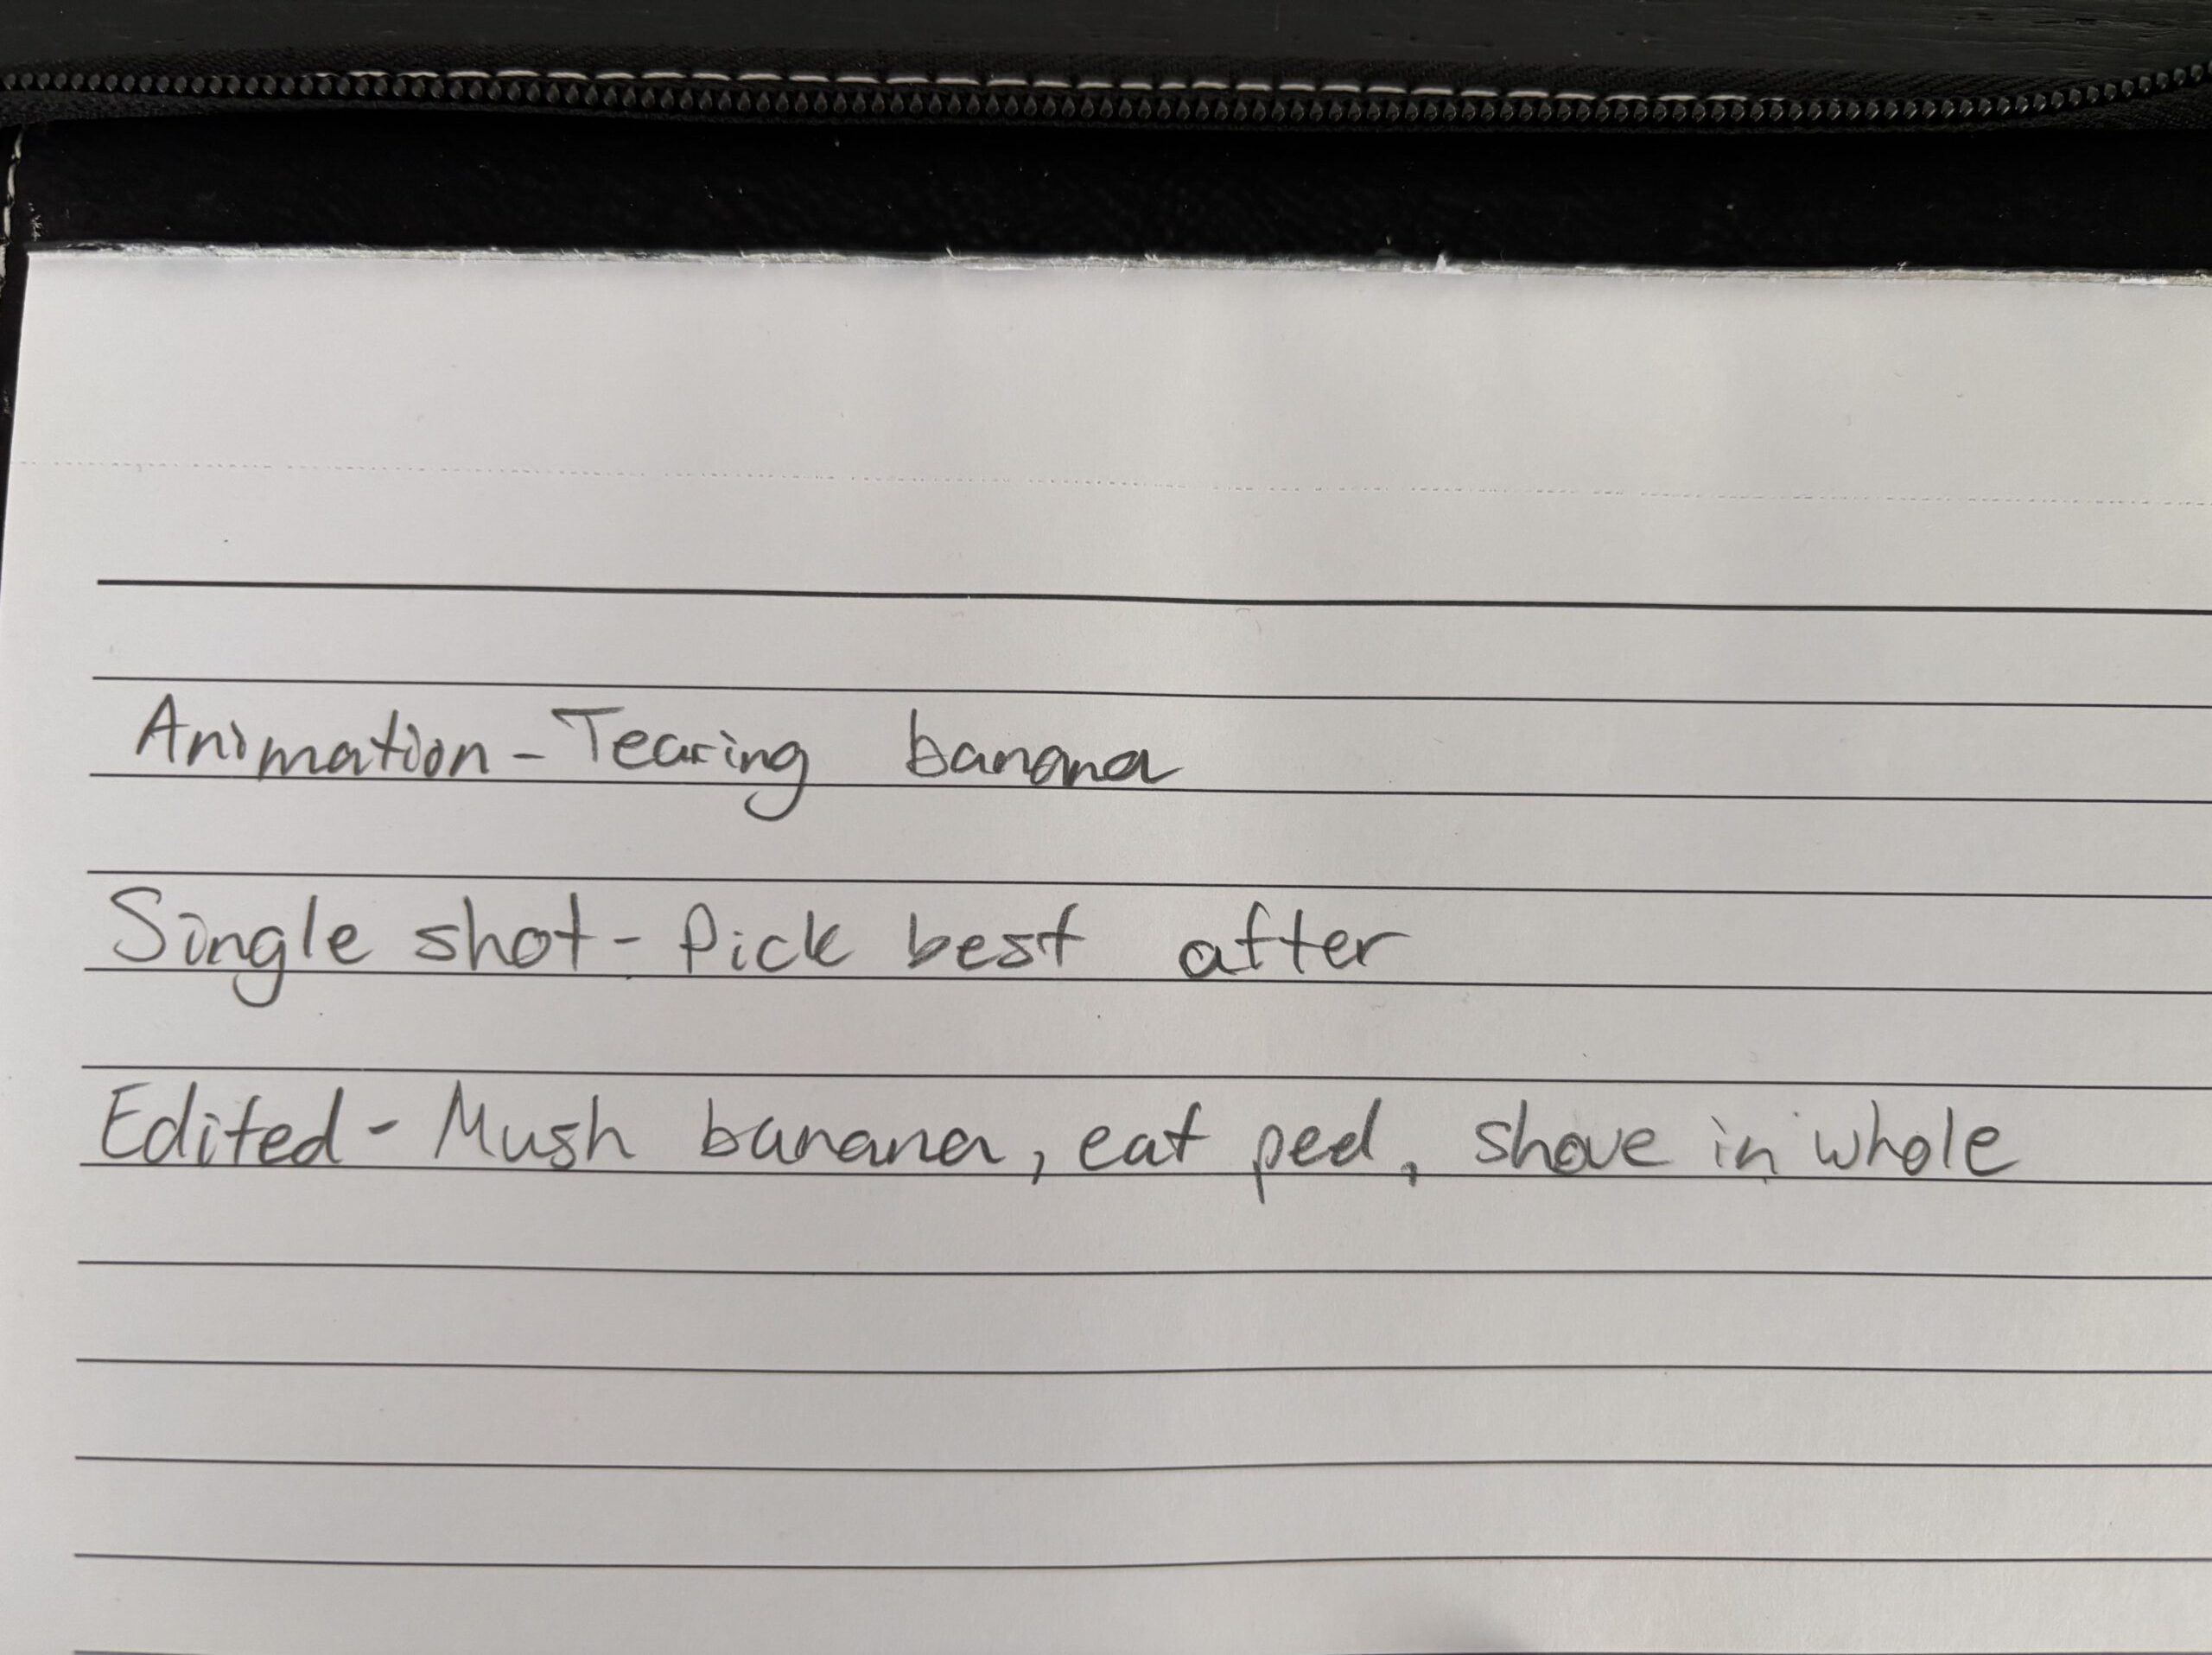 Animation - Tearing banana
Single shot - Pick best after
Edited - Mush banana, eat peel, shove in whole